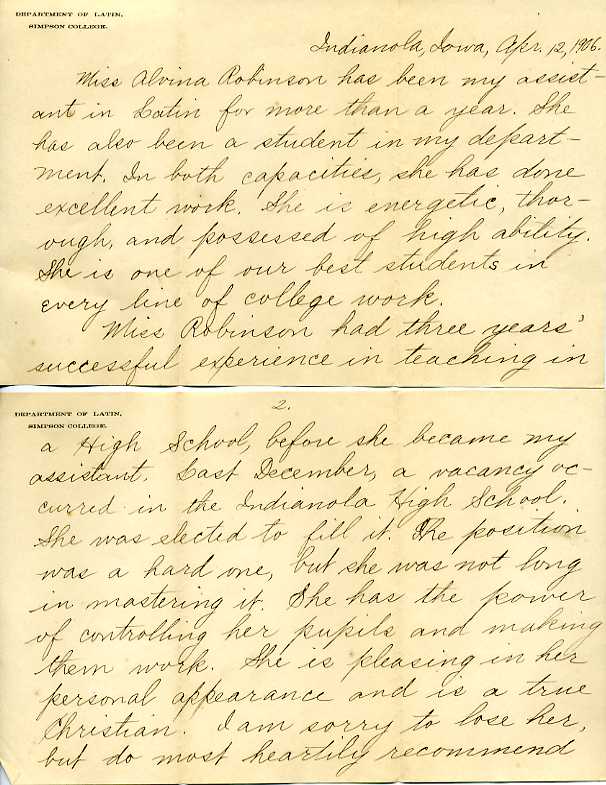 DEPARTMENT OF LATIN,
SIMPSON COLLEGE.
Indianola, Iowa, Apr. 12, 1906.
Miss Alvina Robinson has been my assist-
ant in Latin for more than a year. She
has also been a student in my depart-
ment. In both capacities, she has done
excellent work. She is energetic, thor-
ough, and possessed of high ability.
She is one of our best students in
every line of college work.
Miss Robinson had three years'
successful experience in teaching in
DEPARTMENT OF LATIN,
SIMPSON COLLEGE.
2.
a High School, before she became my
assistant. Last December, a vacancy oc-
curred in the Indianola High School.
She was elected to fill it. The position
was a hard one, but she was not long
in mastering it. She has the power
of controlling her pupils and making
them work. She is pleasing in her
personal appearance and is a true
Christian. I am sorry to lose her,
but do most heartily recommend